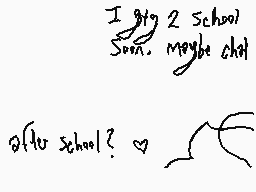 I gtg 2 school
soon. maybe chat
after school? ♡